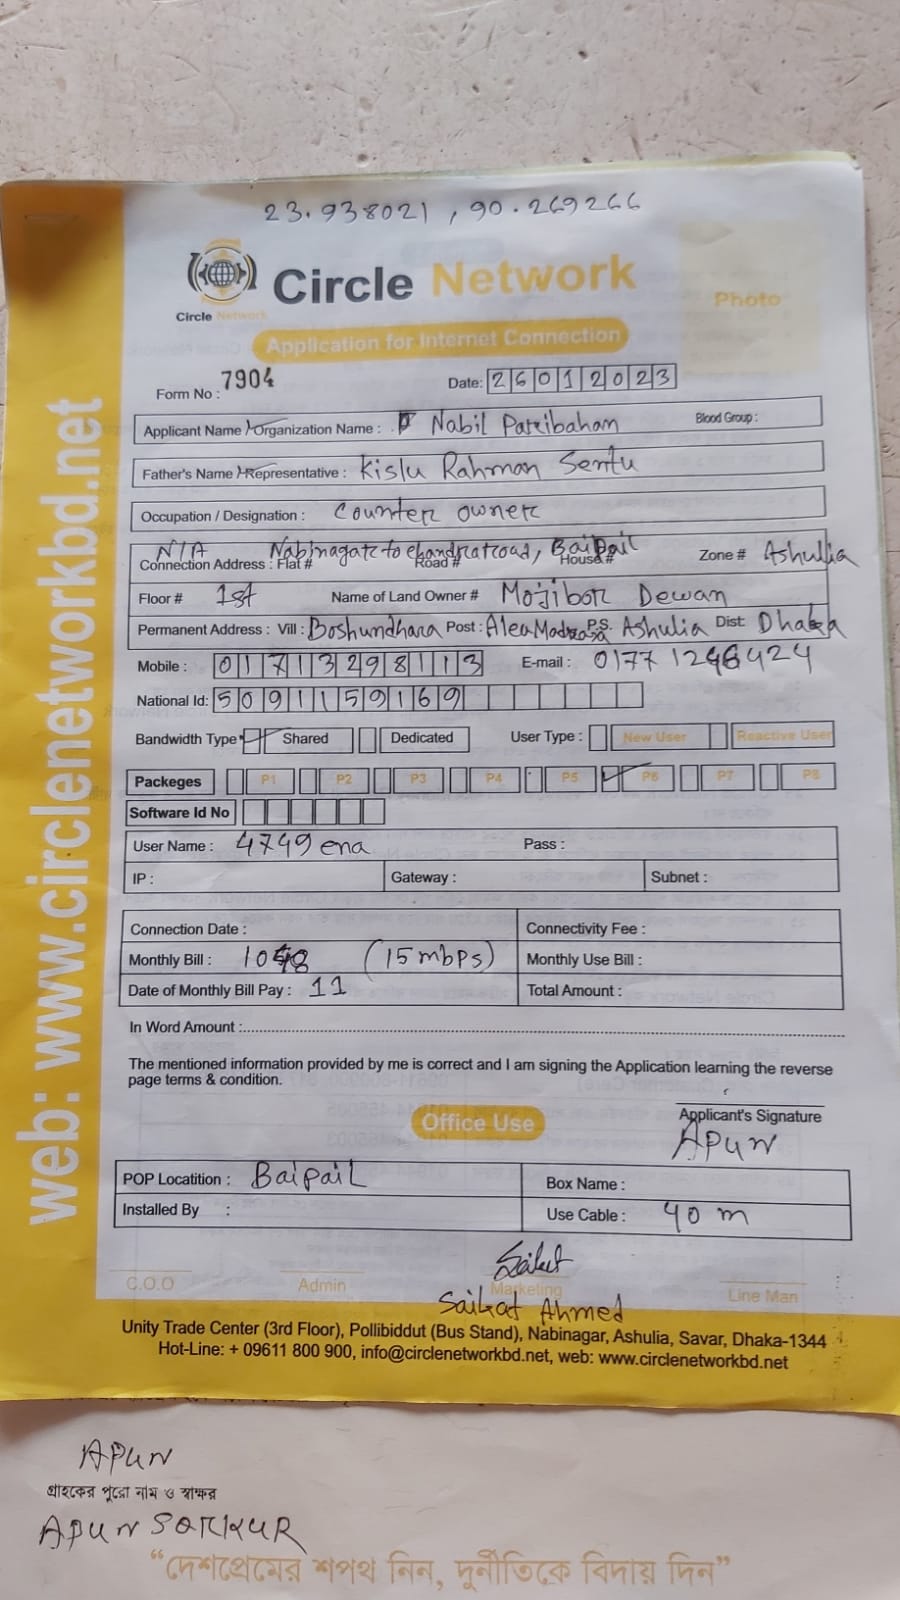 23.938021, 90.269266
Circle Network
Circle Network
Photo
Application for Internet Connection
Form No : 7904
Date: 26012023
Applicant Name / Organization Name : Nabil Paribahan Blood Group :
Father's Name / Representative : Kislu Rahman Sentu
Occupation / Designation : Counter owner
N/A Nabinagar to chandra road, Baipail
Connection Address : Flat # Road # House # Zone # Ashulia
Floor # 1st Name of Land Owner # Mojibor Dewan
Permanent Address : Vill : Boshundhara Post : Alea Madrasa P.S. Ashulia Dist: Dhaka
Mobile : 01713298113 E-mail :
National Id: 5091159169
Bandwidth Type Shared Dedicated User Type : New User Reactive User
Packeges P1 P2 P3 P4 P5 P6 P7 P8
Software Id No
User Name : 4749 ena Pass :
IP : Gateway : Subnet :
Connection Date : Connectivity Fee :
Monthly Bill : (15 mbps) Monthly Use Bill :
Date of Monthly Bill Pay : 11 Total Amount :
In Word Amount :
The mentioned information provided by me is correct and I am signing the Application learning the reverse
page terms & condition.
Applicant's Signature
APUN
Office Use
POP Locatition : Baipail Box Name :
Installed By : Use Cable : 40 m
Saikat
C.O.O Admin Marketing Line Man
Saikat Ahmed
Unity Trade Center (3rd Floor), Pollibiddut (Bus Stand), Nabinagar, Ashulia, Savar, Dhaka-1344
Hot-Line: + 09611 800 900, info@circlenetworkbd.net, web: www.circlenetworkbd.net
web: www.circlenetworkbd.net
APUN
গ্রাহকের পুরো নাম ও স্বাক্ষর
APUN SARKUR
“দেশপ্রেমের শপথ নিন, দুর্নীতিকে বিদায় দিন”